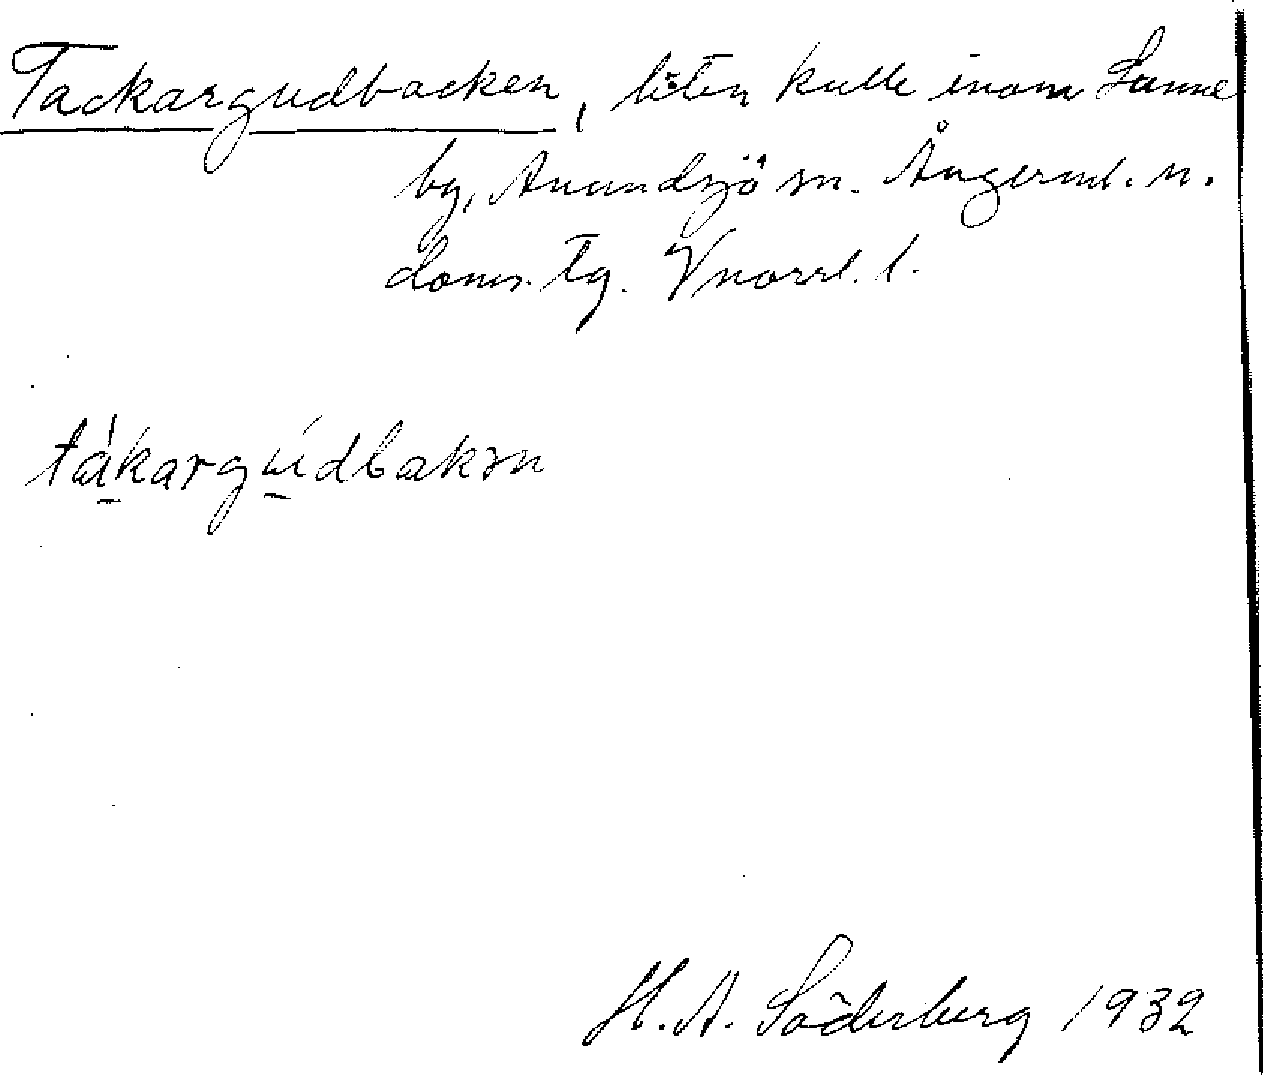 Tackargudbacken, liten kulle inom Sunne
by, Anundsjö sn. Ångerml. n.
doms. tg. Vnorrl. l.
tákargúdbakən
H. A. Söderberg 1932